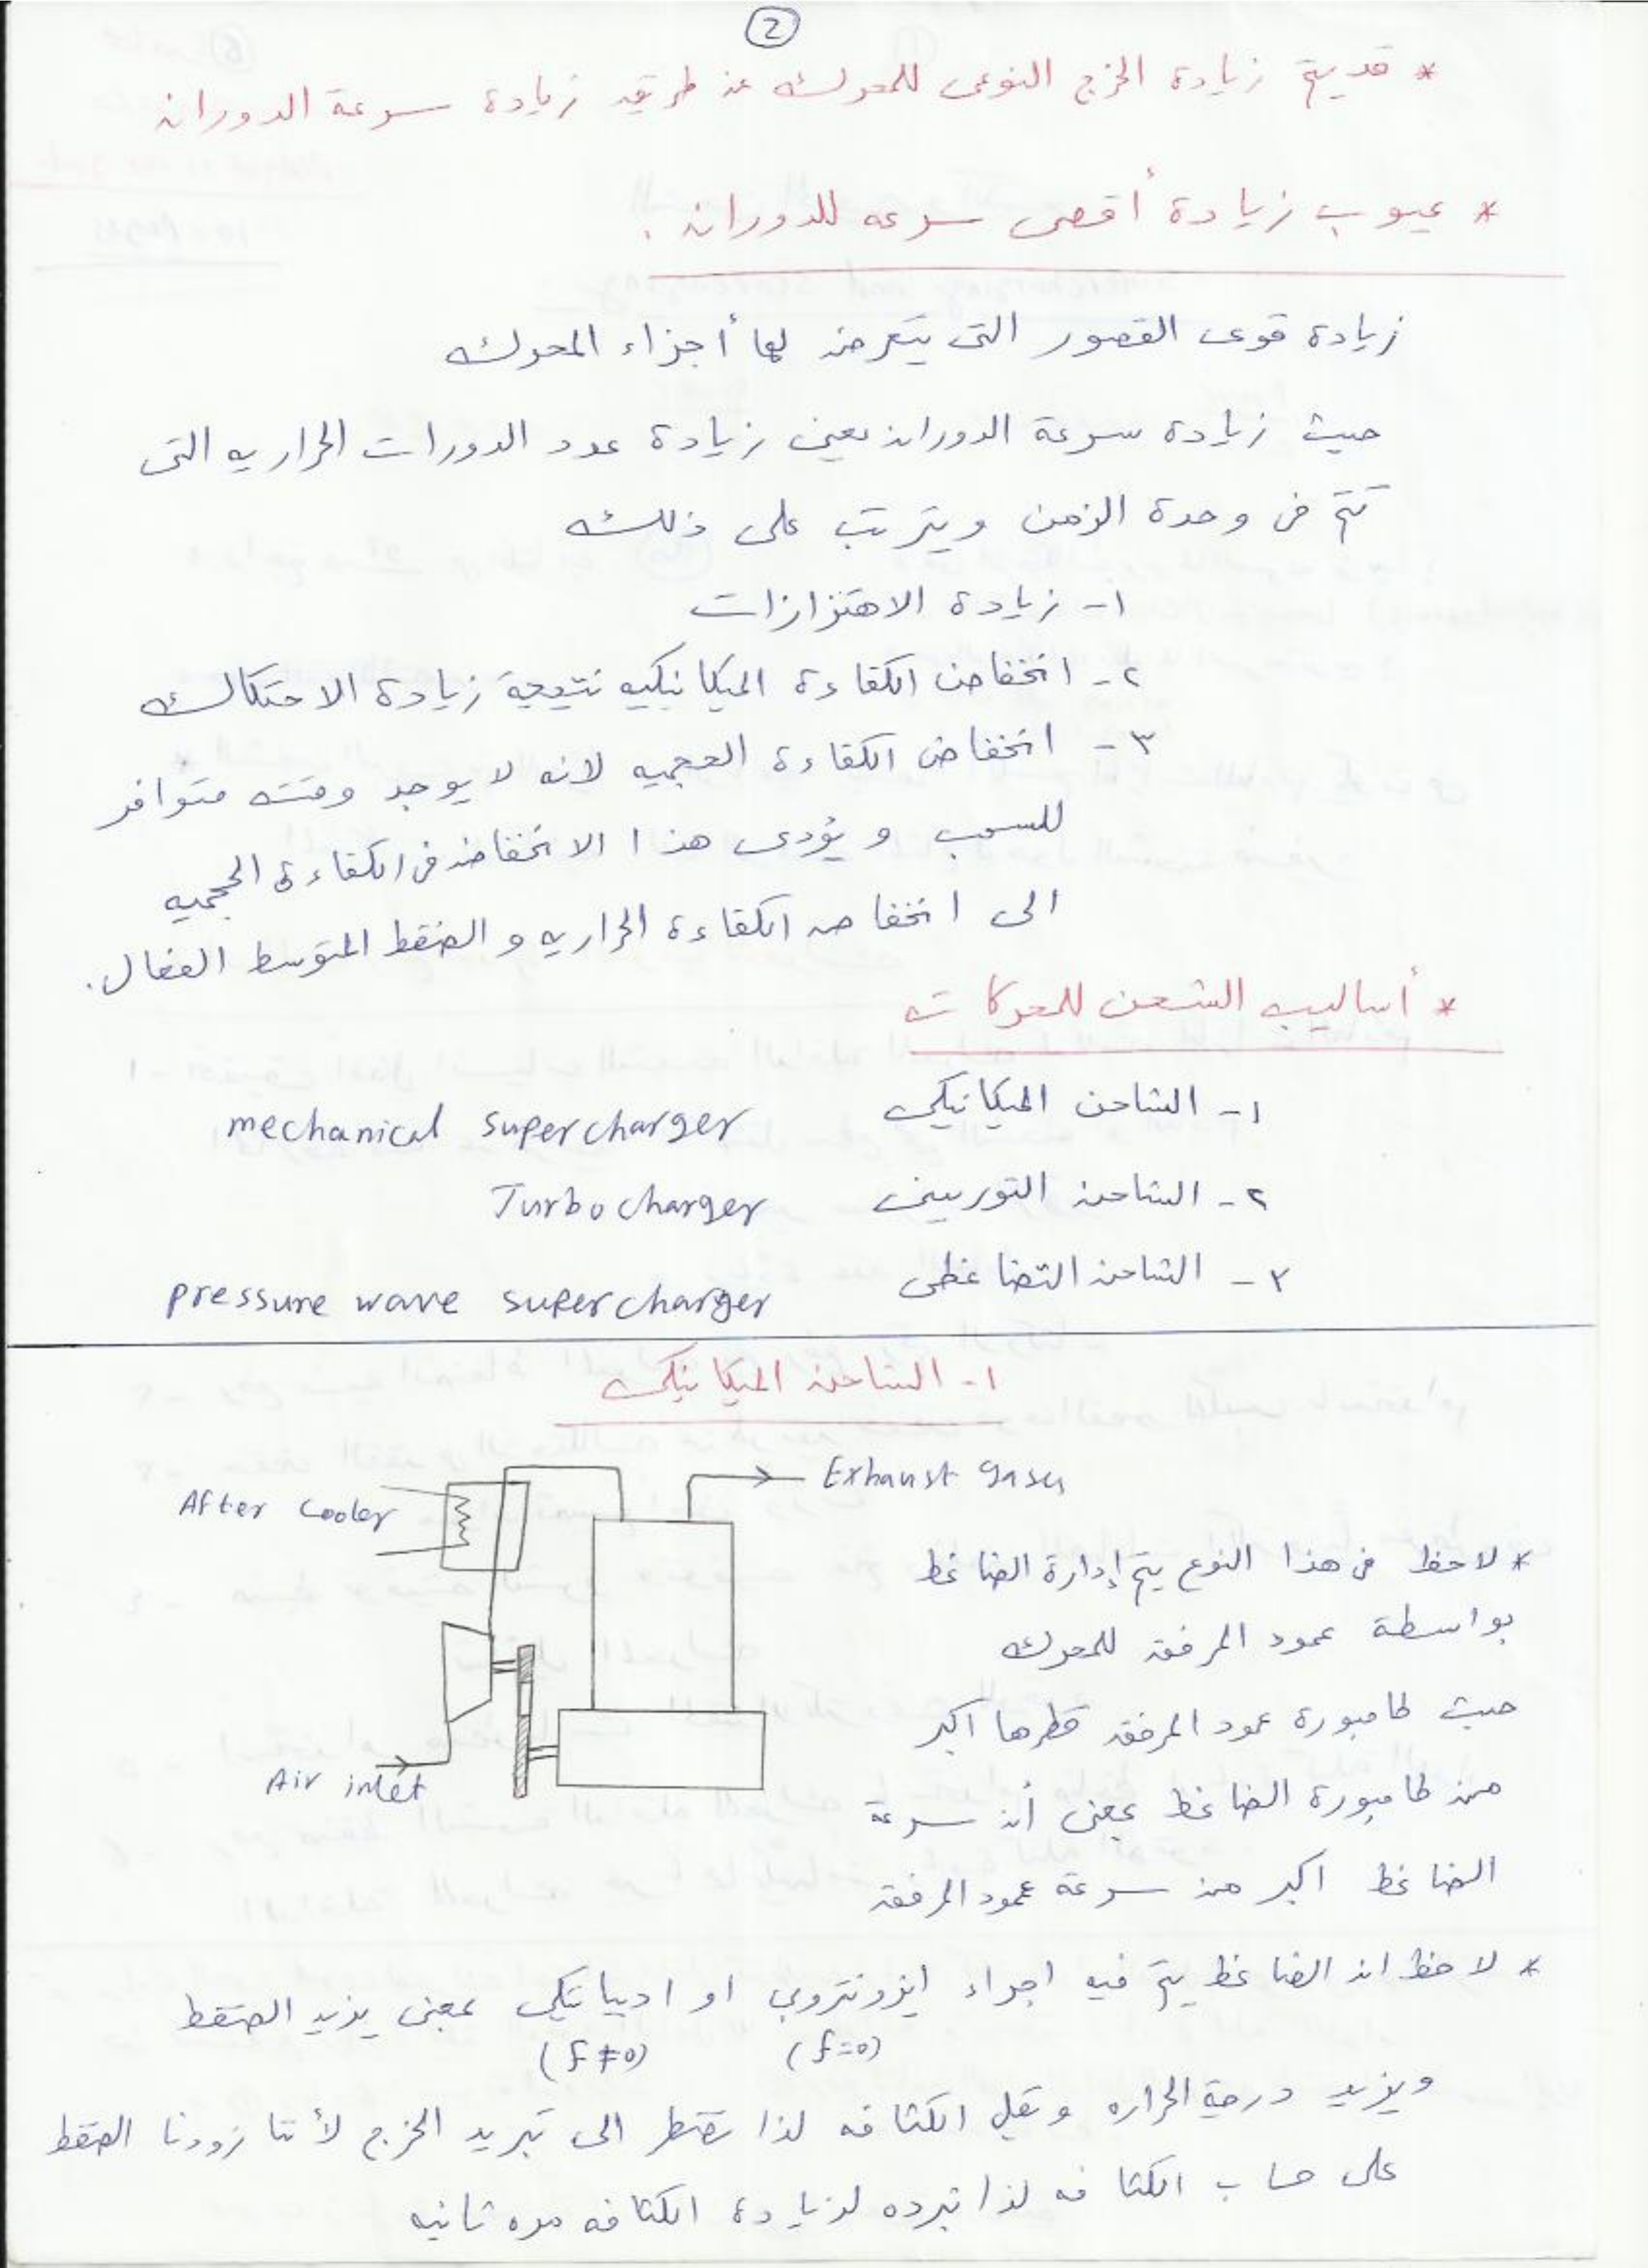 2
* قد يتم زيادة الخرج النوعى للمحرك عن طريق زيادة سرعة الدوران
* عيوب زيادة أقصى سرعه للدوران :
زيادة قوى القصور التى يتعرض لها أجزاء المحرك
حيث زيادة سرعة الدوران يعنى زيادة عدد الدورات الحراريه التى
تتم فى وحدة الزمن ويترتب على ذلك
١- زيادة الاهتزازات
٢- انخفاض الكفاءة الميكانيكيه نتيجة زيادة الاحتكاك
٣- انخفاض الكفاءة الحجميه لانه لا يوجد وقت متوافر
للسحب و يؤدى هذا الانخفاض فى الكفاءة الحجميه
الى انخفاض الكفاءة الحراريه و الضغط المتوسط الفعال.
* أساليب الشحن للمحركات
١- الشاحن الميكانيكى mechanical supercharger
٢- الشاحن التوربينى Turbocharger
٣- الشاحن التضاغطى pressure wave supercharger
١- الشاحن الميكانيكى
Exhaust gases
After cooler
Air inlet
* لاحظ فى هذا النوع يتم إدارة الضاغط
بواسطة عمود المرفق للمحرك
حيث طامبورة عمود المرفق قطرها اكبر
من طامبورة الضاغط بمعنى أن سرعة
الضاغط اكبر من سرعة عمود المرفق
* لاحظ ان الضاغط يتم فيه اجراء ايزونتروبى او اديباتيكى بمعنى يزيد الضغط
(f=0) (f≠0)
ويزيد درجة الحراره وتقل الكثافه لذا نضطر الى تبريد الخرج لأننا زودنا الضغط
على حساب الكثافه لذا نبرده لزيادة الكثافه مره ثانيه